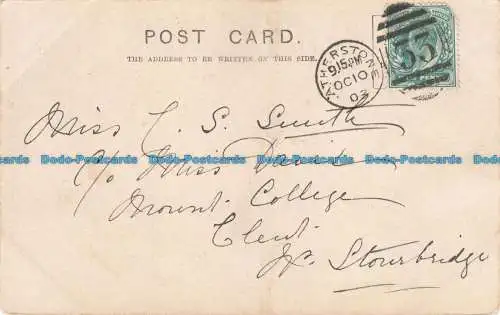 POST CARD.
THE ADDRESS TO BE WRITTEN ON THIS SIDE.
ATHERSTONE
9.15PM
OC10
03
33
Miss C. S. Smith
c/o Miss
Mount College
Clent
Nr. Stourbridge
Dodo-Postcards Dodo-Postcards Dodo-Postcards Dodo-Postcards Dodo-Postcards